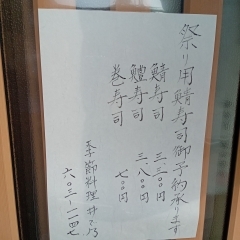 祭り用鯖寿司御予約承ります
鯖寿司 三、三〇〇円
鱧寿司 三、八〇〇円
巻寿司 七〇〇円
季節料理 井
六〇三-二一四七